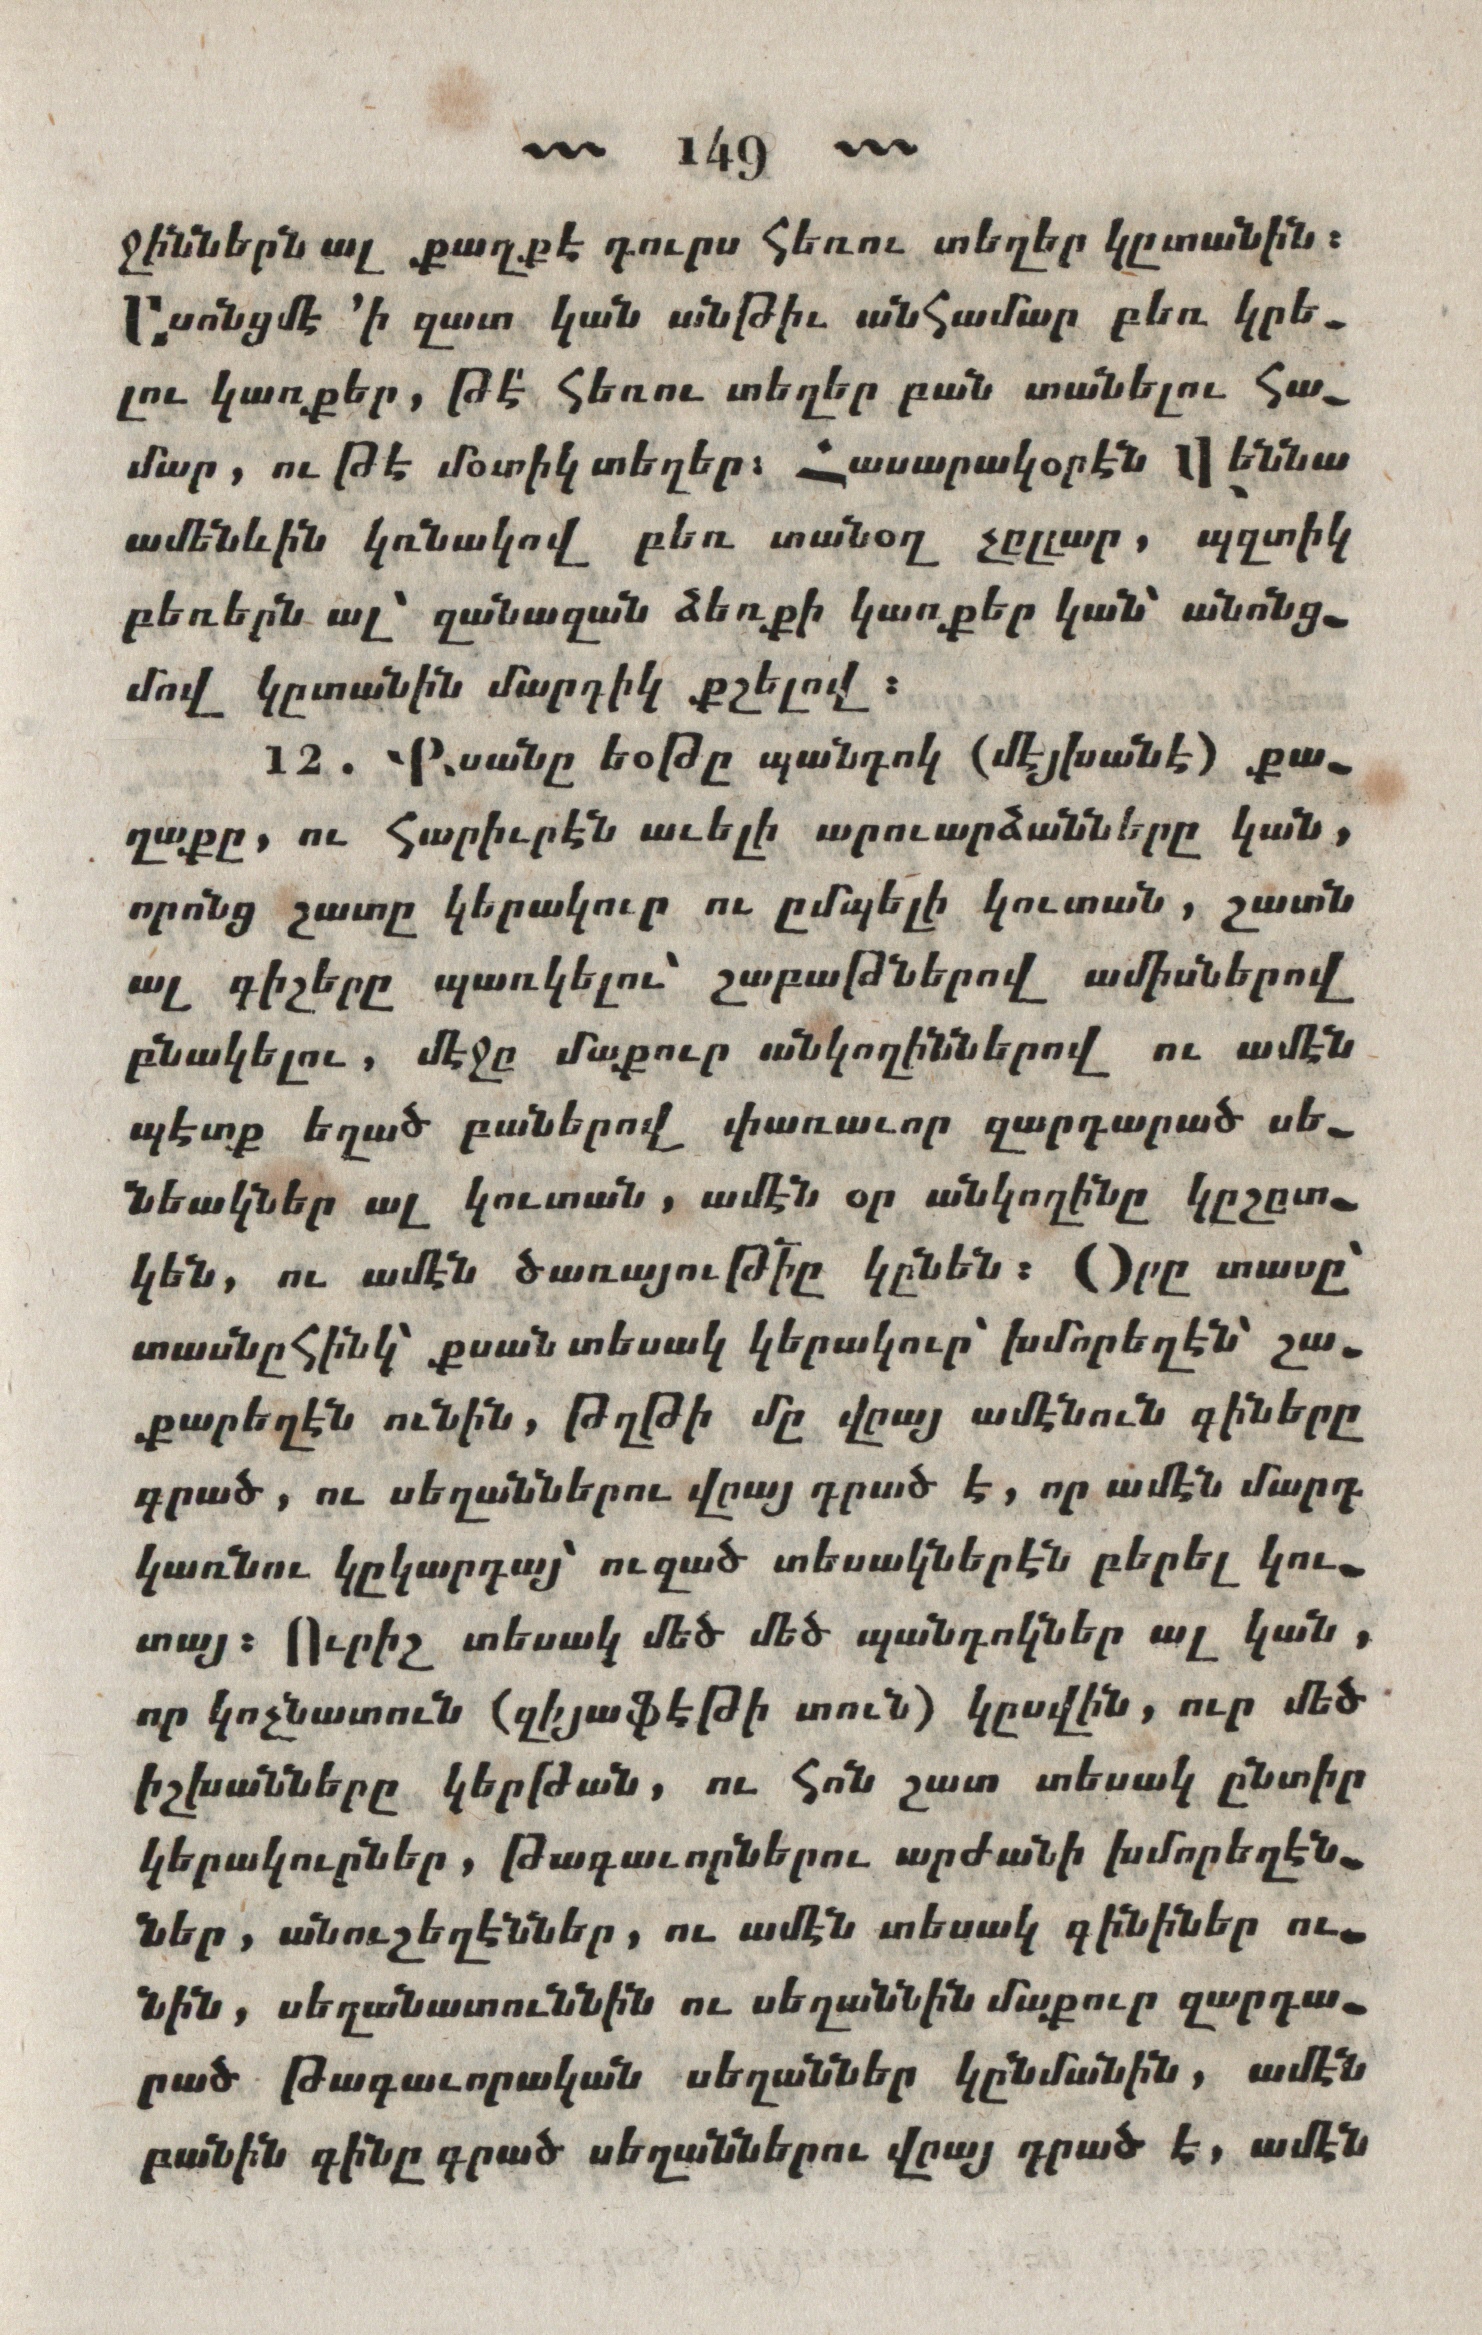 ~~ 149 ~~
ջիններն ալ քաղքէ դուրս հեռու տեղեր կըտանին։
Ըսոնցմէ ՚ի զատ կան անթիւ անհամար բեռ կրե-
լու կառքեր, թէ՛ հեռու տեղեր բան տանելու հա-
մար, ու թէ մօտիկ տեղեր։ Հասարակօրէն Վեննա
ամենևին կռնակով բեռ տանօղ չըլլար, պզտիկ
բեռերն ալ՝ զանազան ձեռքի կառքեր կան՝ անոնց-
մով կըտանին մարդիկ քշելով։
12. Քսանը եօթը պանդոկ (մէյխանէ) քա-
ղաքը, ու հարիւրէն աւելի արուարձանները կան,
որոնց շատը կերակուր ու ըմպելի կուտան, շատն
ալ գիշերը պառկելու՝ շաբաթներով ամիսներով
բնակելու, մէջը մաքուր անկողիններով ու ամէն
պէտք եղած բաներով փառաւոր զարդարած սե-
նեակներ ալ կուտան, ամէն օր անկողինը կըշըտ-
կեն, ու ամէն ծառայութիը կընեն։ Օրը տասը՝
տասնըհինկ՝ քսան տեսակ կերակուր՝ խմորեղէն՝ շա-
քարեղէն ունին, թղթի մը վըայ ամէնուն գիները
գրած, ու սեղաններու վըայ դրած է, որ ամէն մարդ
կառնու կըկարդայ՝ ուզած տեսակներէն բերել կու-
տայ։ Ուրիշ տեսակ մեծ մեծ պանդոկներ ալ կան,
որ կոչնատուն (զիյաֆէթի տուն) կըսվին, ուր մեծ
իշխանները կերթան, ու հոն շատ տեսակ ընտիր
կերակուրներ, թագաւորներու արժանի խմորեղէն-
ներ, անուշեղէններ, ու ամէն տեսակ գինիներ ու-
նին, սեղանատուննին ու սեղաննին մաքուր զարդա-
րած թագաւորական սեղաններ կընմանին, ամէն
բանին գինը գրած սեղաններու վըայ դրած է, ամէն